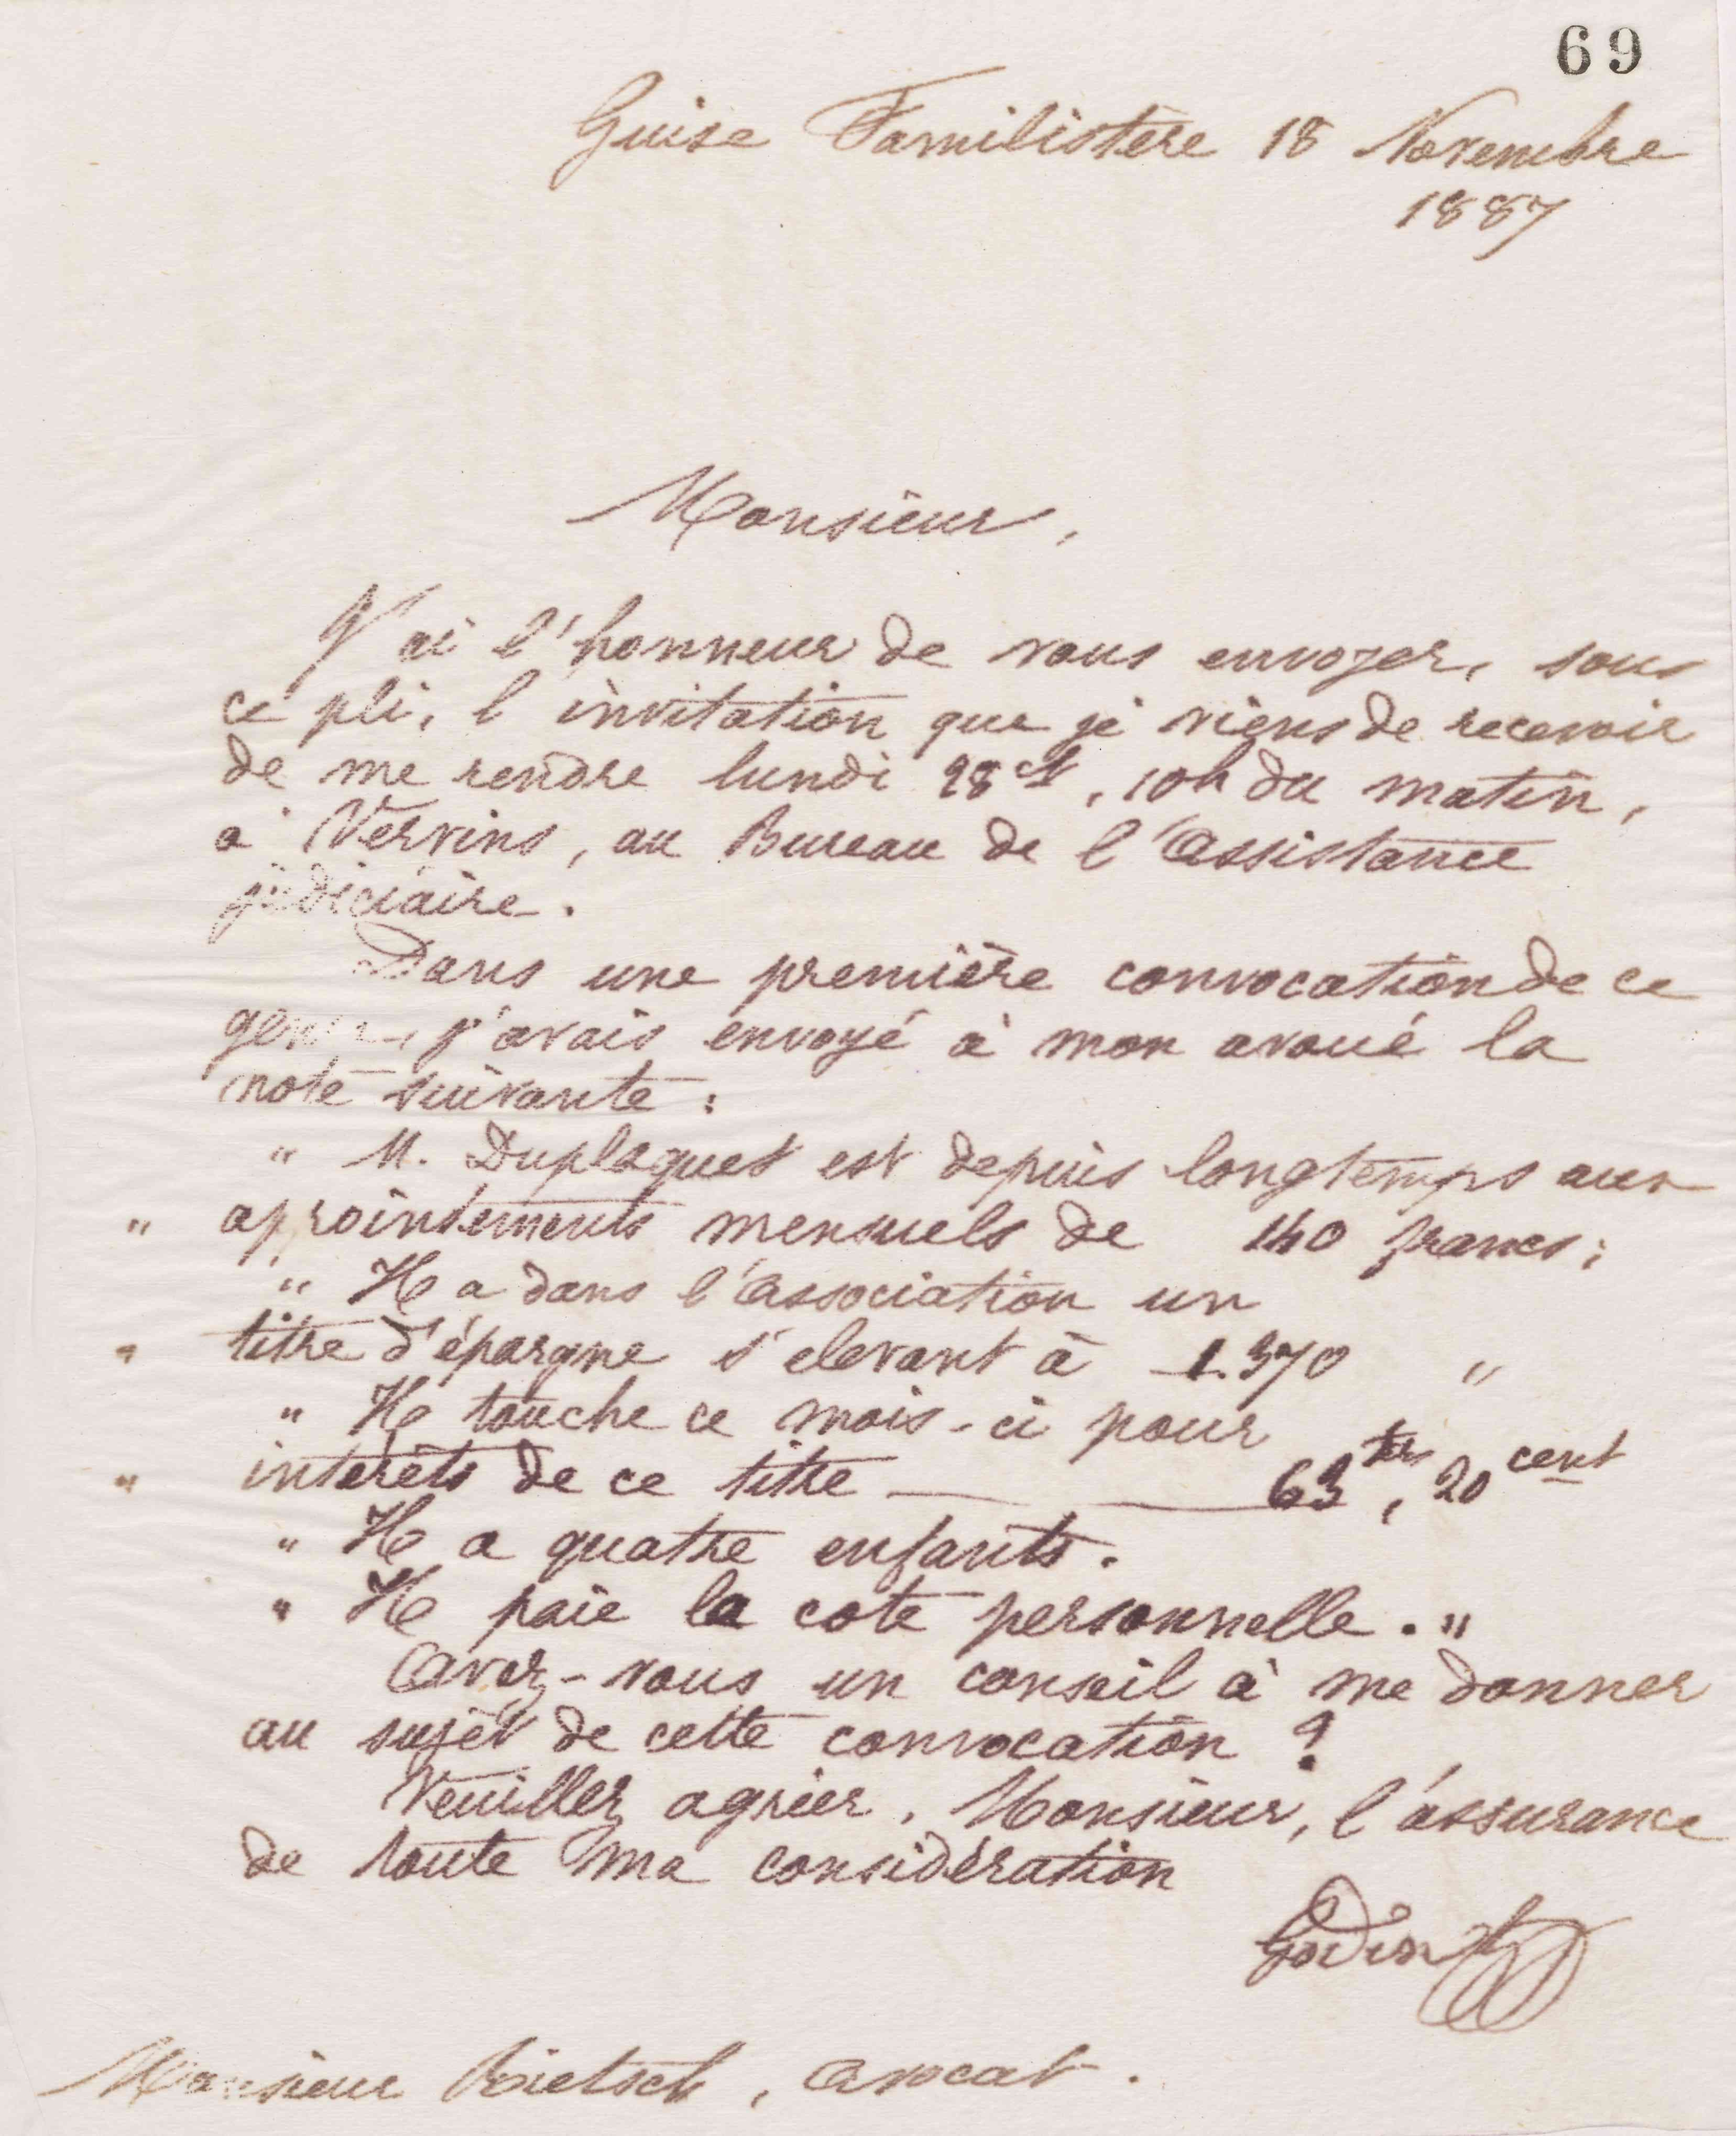 69
Guise Familistère 18 Novembre
1887
Monsieur,
J'ai l'honneur de vous envoyer, sous
ce pli, l'invitation que je viens de recevoir
de me rendre lundi 28 ct, 10h du matin,
à Vervins, au Bureau de l'Assistance
judiciaire.
Dans une première convocation de ce
genre, j'avais envoyé à mon avoué la
note suivante :
" M. Duplaquet est depuis longtemps aux
" apointements mensuels de 140 francs ;
" Il a dans l'association un
" titre d'épargne s'elevant à 1.370 "
" Il touche ce mois-ci pour
" intérêts de ce titre — 63 frs, 20 cent
" Il a quatre enfants.
" Il paie la cote personnelle. "
Avez-vous un conseil à me donner
au sujet de cette convocation ?
Veuillez agréer, Monsieur, l'assurance
de toute ma considération
Godin
Monsieur Rietsch, avocat.